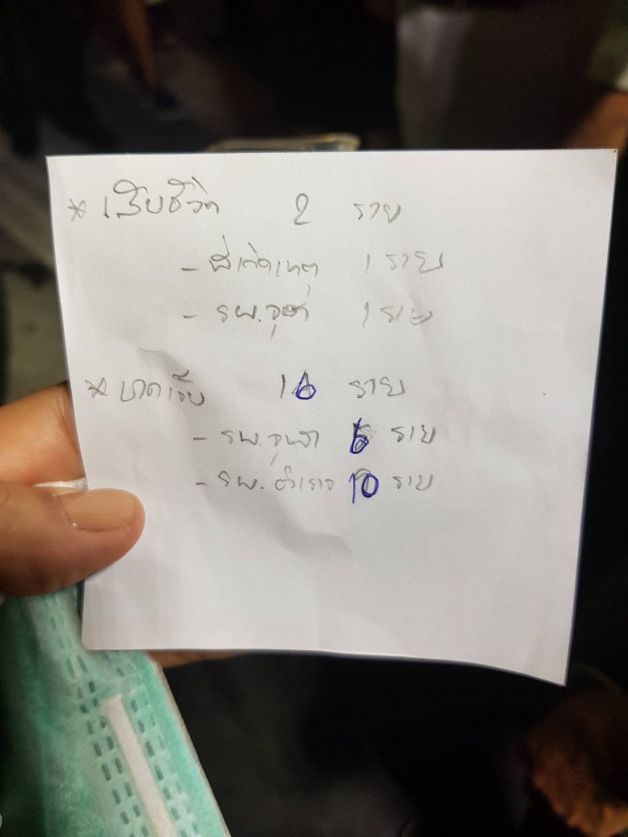 * เสียชีวิต 2 ราย
- ที่เกิดเหตุ 1 ราย
- รพ.จุฬา 1 ราย
* บาดเจ็บ 16 ราย
- รพ.จุฬา 6 ราย
- รพ.ตำรวจ 10 ราย